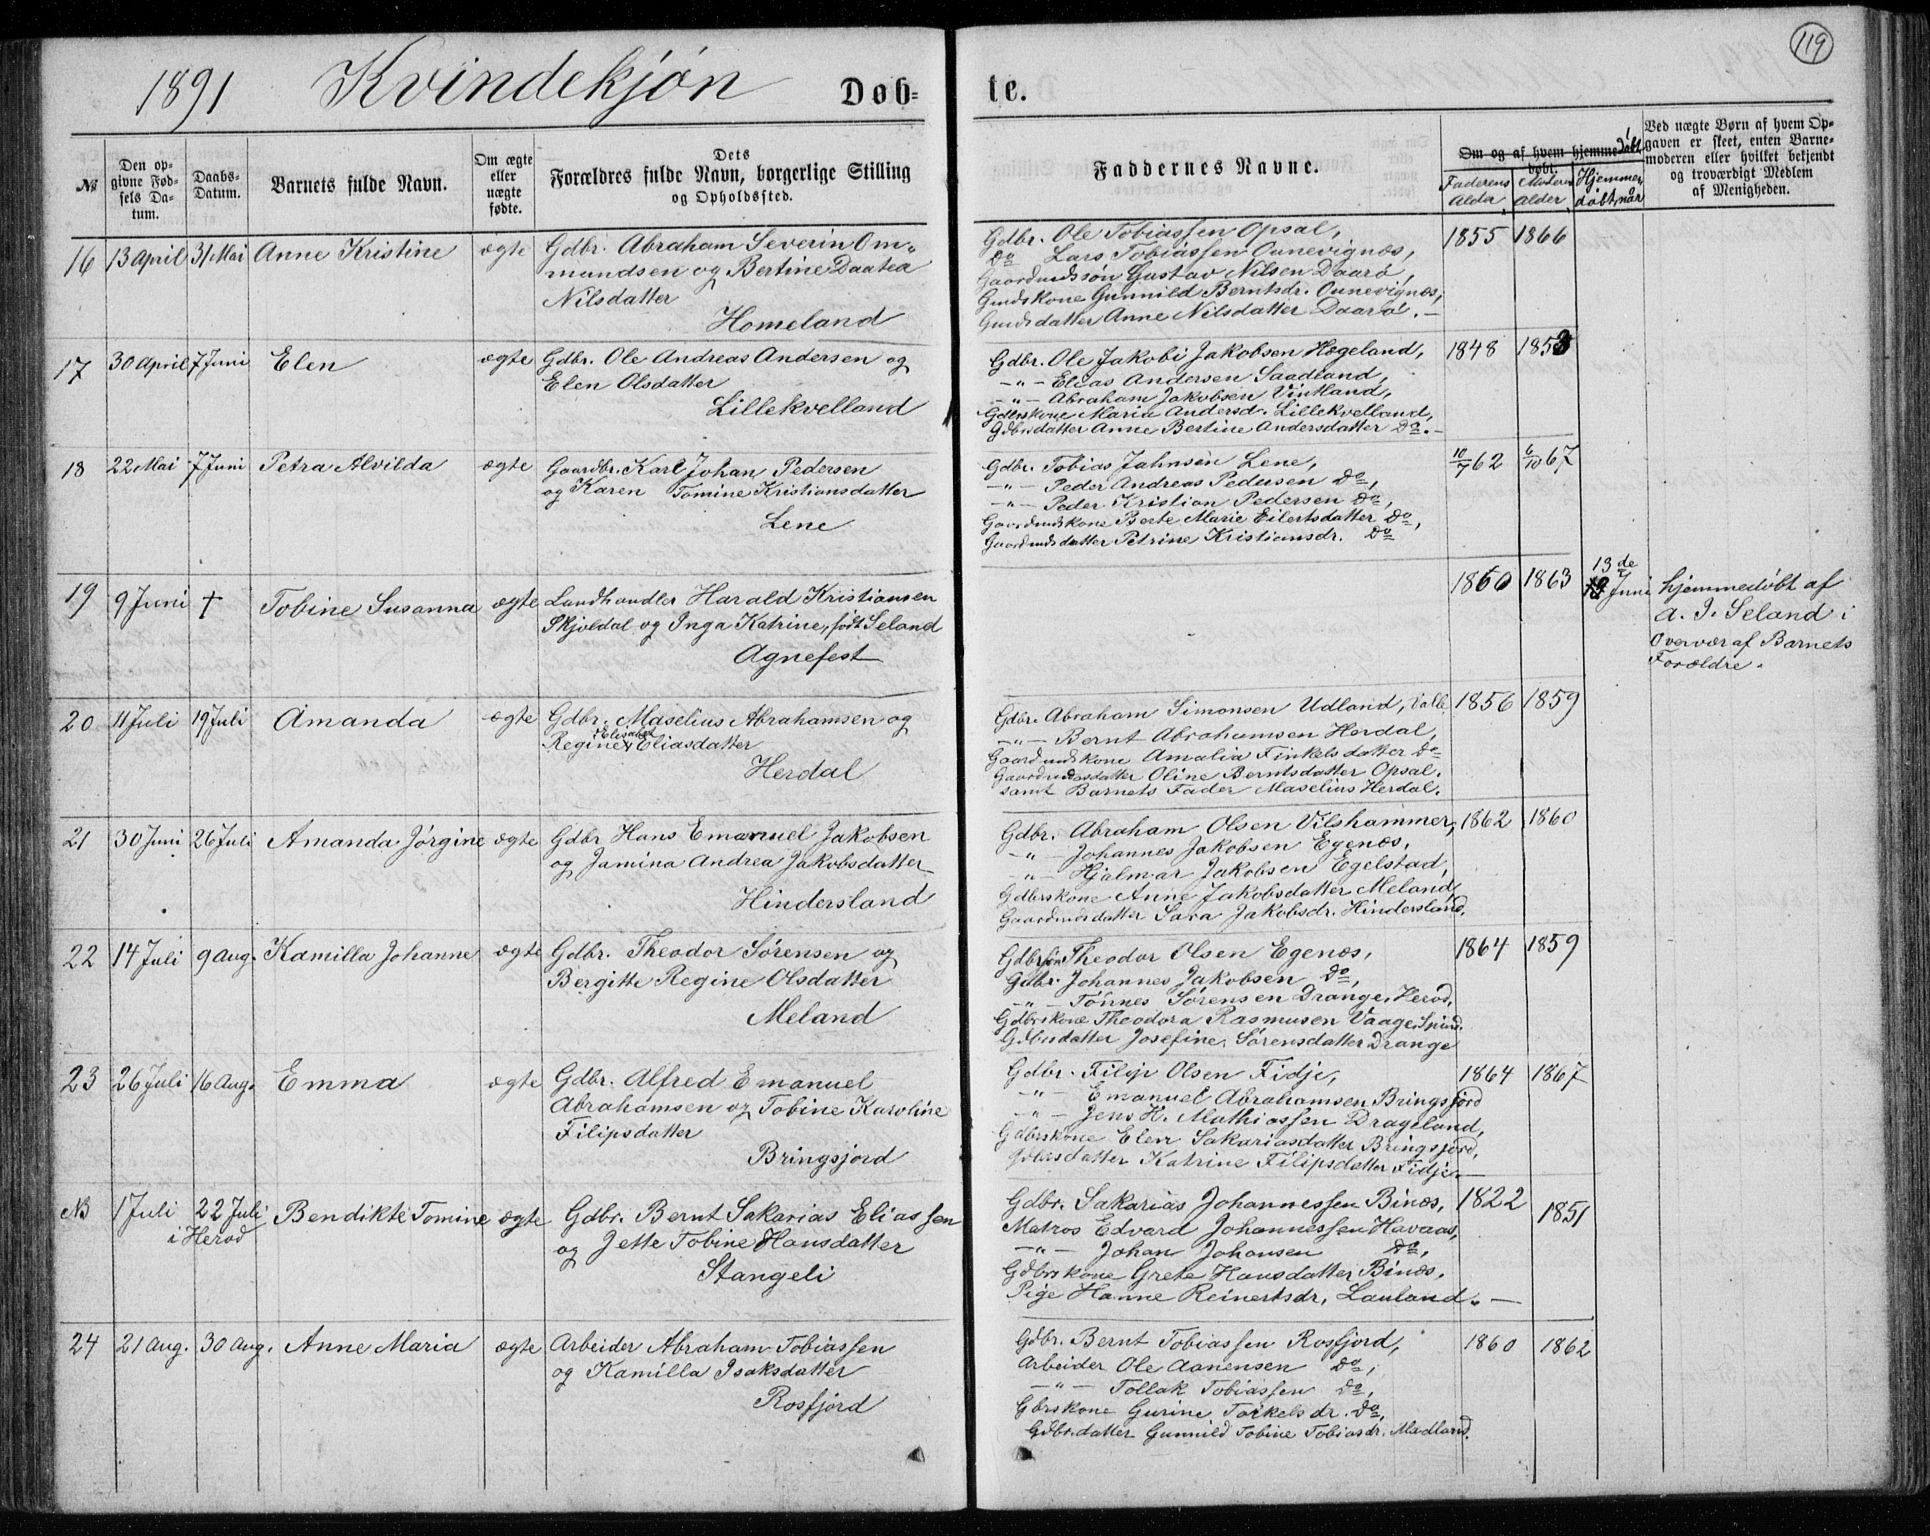 119
1891 Kvindekjön Døb= te.
№
Den op-
givne Fød-
sels Da-
tum.
Daabs-
Datum.
Barnets fulde Navn.
Om ægte
eller
uægte
fødte.
Dets
Forældres fulde Navn, borgerlige Stilling
og Opholdssted.
Faddernes Navne.
Om og af hvem hjemme döbt
døbt.
Faderens
Alder
Moderens
Alder
Hjemme-
döbt, når
Ved uægte Børn af hvem Op-
gaven er skeet, enten Barne-
moderen eller hvilket bekjendt
og troværdigt Medlem
af Menigheden.
16 13 April 31 Mai Anne Kristine ægte Gdbr. Abraham Severin Om-
mundsen og Bertine Daatea
Nilsdatter
Homeland
Gdbr. Ole Tobiassen Opsal, 1855 1866
Do Lars Tobiassen Ounevignæs,
Gaardmdssön Gustav Nilsen Daarö,
Gmdskone Gunnild Berntsdr. Ounevignæs,
Gmdsdatter Anne Nilsdatter Daarö. —
17 30 April 7 Juni Elen ægte Gdbr. Ole Andreas Andersen og
Elen Olsdatter
Lillekvelland
Gdbr. Ole Jakobi Jakobsen Hægeland, 1848 1853
-"- Elias Andersen Saadland,
-"- Abraham Jakobsen Vintland,
Gdbrskone Maria Andersd. Lillekvelland,
Gdbrsdatter Anne Bertine Andersdatter Do. —
18 22 Mai 7 Juni Petra Alvilda ægte Gaardbr. Karl Johan Pedersen
og Karen Tomine Kristiansdatter
Lene
Gdbr. Tobias Jahnsen Lene, 10/7 62 6/10 67
-"- Peder Andreas Pedersen Do,
-"- Peder Kristian Pedersen Do,
Gaardmdskone Berte Marie Eilertsdatter Do,
Gaardmdsdatter Petrine Kristiansdr. Do
19 9 Juni † Tobine Susanna ægte Landhandler Harald Kristiansen
Skjoldal og Inga Katrine, född Seland
Agnefest
1860 1863 13de Juni hjemmedöbt af
A. I. Seland i
Overvær af Barnets
Forældre.
20 11 Juli 19 Juli Amanda ægte Gdbr. Maselius Abrahamsen og
Regine Elisabet Eliasdatter
Herdal
Gdbr. Abraham Simonsen Udland, Valle 1856 1859
-"- Bernt Abrahamsen Herdal,
Gaardmdskone Amalia Finkelsdatter Do
Gaardmdsdatter Oline Berntsdatter Opsal.
samt Barnets Fader Maselius Herdal.
21 30 Juni 26 Juli Amanda Jörgine ægte Gdbr Hans Emanuel Jakobsen
og Jamina Andrea Jakobsdatter
Hindersland
Gdbr. Abraham Olsen Vilshammer, 1862 1860
-"- Johannes Jakobsen Egenæs,
-"- Hjalmar Jakobsen Egelstad,
Gdbrskone Anne Jakobsdatter Meland,
Gaardmdsdatter Sara Jakobsdr. Hindersland.
22 14 Juli 9 Aug. Kamilla Johanne ægte Gdbr. Theodor Sörensen og
Bergitte Regine Olsdatter
Meland
Gdbrsön Theodor Olsen Egenæs, 1864 1859
Gdbr. Johannes Jakobsen Do,
-"- Tönnes Sörensen Drange, Herod,
Gdbrskone Theodora Rasmusen Vaage, Spind.
Gdbrsdatter Josefine Sörensdatter Drange
23 26 Juli 16 Aug. Emma ægte Gdbr. Alfred Emanuel
Abrahamsen og Tobine Karoline
Filipsdatter
Bringsjord
Gdbr. Filip Olsen Fidje, 1864 1867
-"- Emanuel Abrahamsen Bringsjord
-"- Jens H. Mathiassen Drageland,
Gdbrskone Elen Sakariasdatter Bringsjord,
Gdbrsdatter Katrine Filipsdatter Fidje —
NB 1 Juli 22 Juli Bendikte Tomine ægte Gdbr. Bernt Sakarias Eliassen
i Herod
og Jette Tobine Hansdatter
Stangeli
Gdbr. Sakarias Johannessen Binæs, 1822 1851
Matros Edvard Johannessen Havaas,
-"- Johan Johansen Do,
Gdbrskone Grete Hansdatter Binæs,
Pige Hanne Reinertsdr, Lauland. —
24 21 Aug. 30 Aug. Anne Maria ægte Arbeider Abraham Tobiassen
og Kamilla Isaksdatter
Rosfjord
Gdbr. Bernt Tobiassen Rosfjord, 1860 1862
Arbeider Ole Aanensen Do,
-"- Tollak Tobiassen Do,
Gbrskone Gurine Torkelsdr. Do,
Gdbr.datter Gunnild Tobine Tobiasdr. Madland.